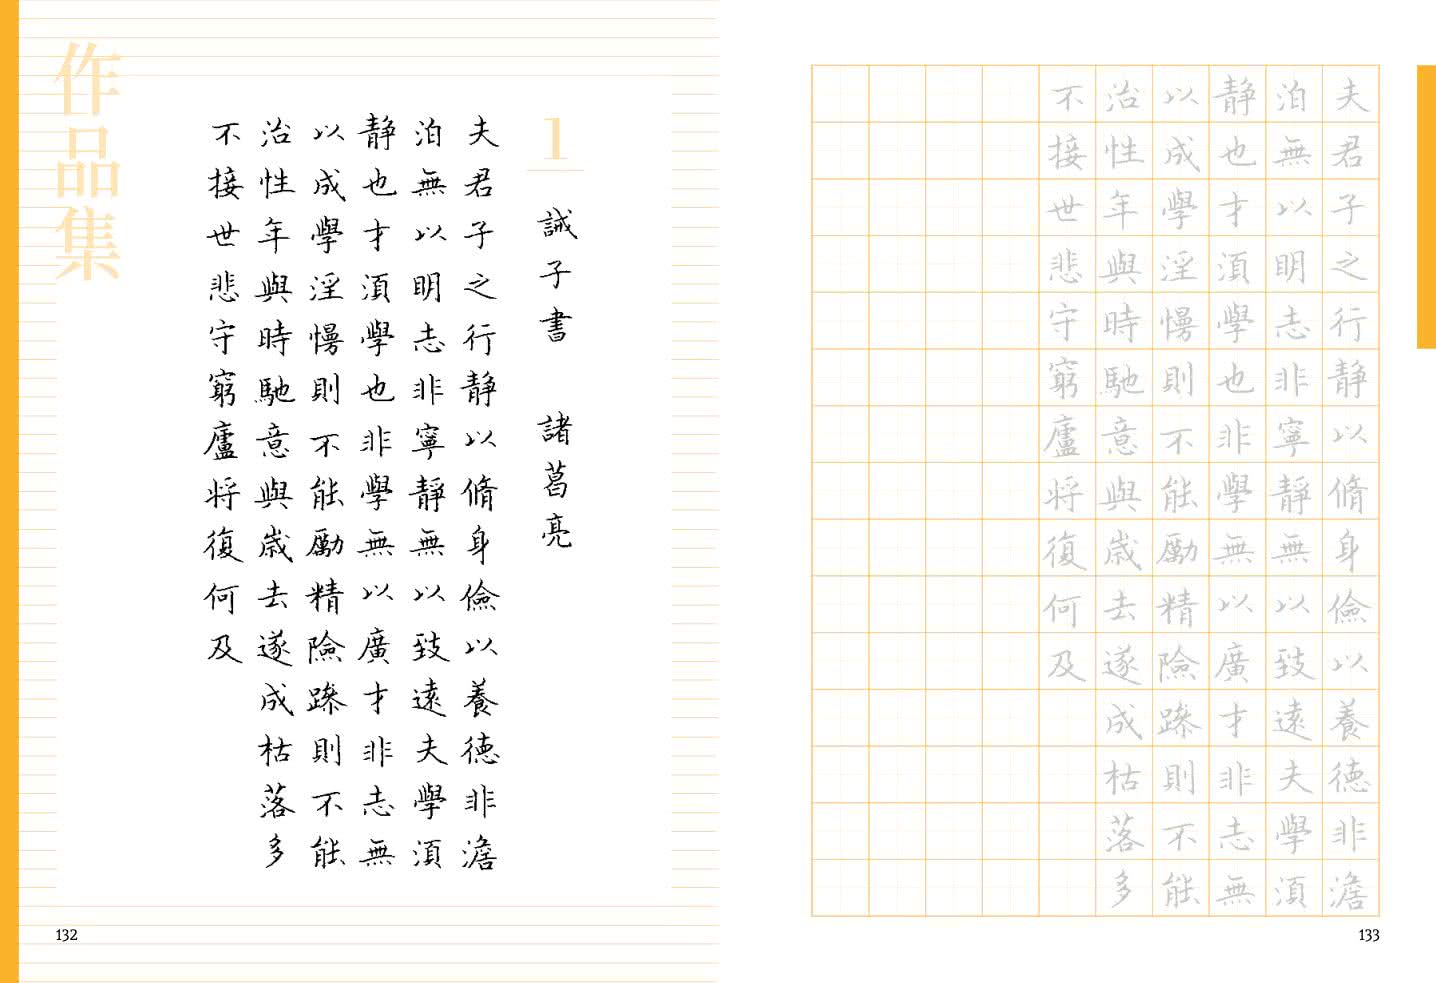 作品集
1
誡子書 諸葛亮
夫君子之行静以脩身儉以養德非澹
泊無以明志非寧静無以致遠夫學湏
静也才湏學也非學無以廣才非志無
以成學淫慢則不能勵精險躁則不能
治性年與時馳意與歲去遂成枯落多
不接世悲守窮廬将復何及
132
夫君子之行静以脩身儉以養德非澹
泊無以明志非寧静無以致遠夫學湏
静也才湏學也非學無以廣才非志無
以成學淫慢則不能勵精險躁則不能
治性年與時馳意與歲去遂成枯落多
不接世悲守窮廬将復何及
133